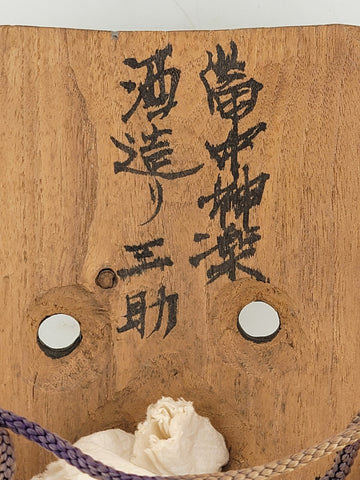 備中神楽
酒造り三助